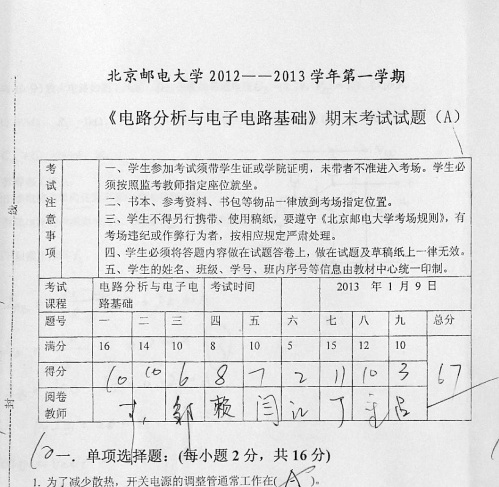 北京邮电大学 2012——2013 学年第一学期
《电路分析与电子电路基础》期末考试试题（A）
考试注意事项
一、学生参加考试须带学生证或学院证明，未带者不准进入考场。学生必
须按照监考教师指定座位就坐。
二、书本、参考资料、书包等物品一律放到考场指定位置。
三、学生不得另行携带、使用稿纸，要遵守《北京邮电大学考场规则》，有
考场违纪或作弊行为者，按相应规定严肃处理。
四、学生必须将答题内容做在试题答卷上，做在试题及草稿纸上一律无效。
五、学生的姓名、班级、学号、班内序号等信息由教材中心统一印制。
考试课程 电路分析与电子电路基础 考试时间 2013 年 1 月 9 日
题号 一 二 三 四 五 六 七 八 九 总分
满分 16 14 10 8 10 5 15 12 10
得分 10 10 6 8 7 2 11 10 3 67
阅卷教师 邹 赖 闫 江 丁
10
一． 单项选择题：(每小题 2 分，共 16 分)
1. 为了减少散热，开关电源的调整管通常工作在( A )。